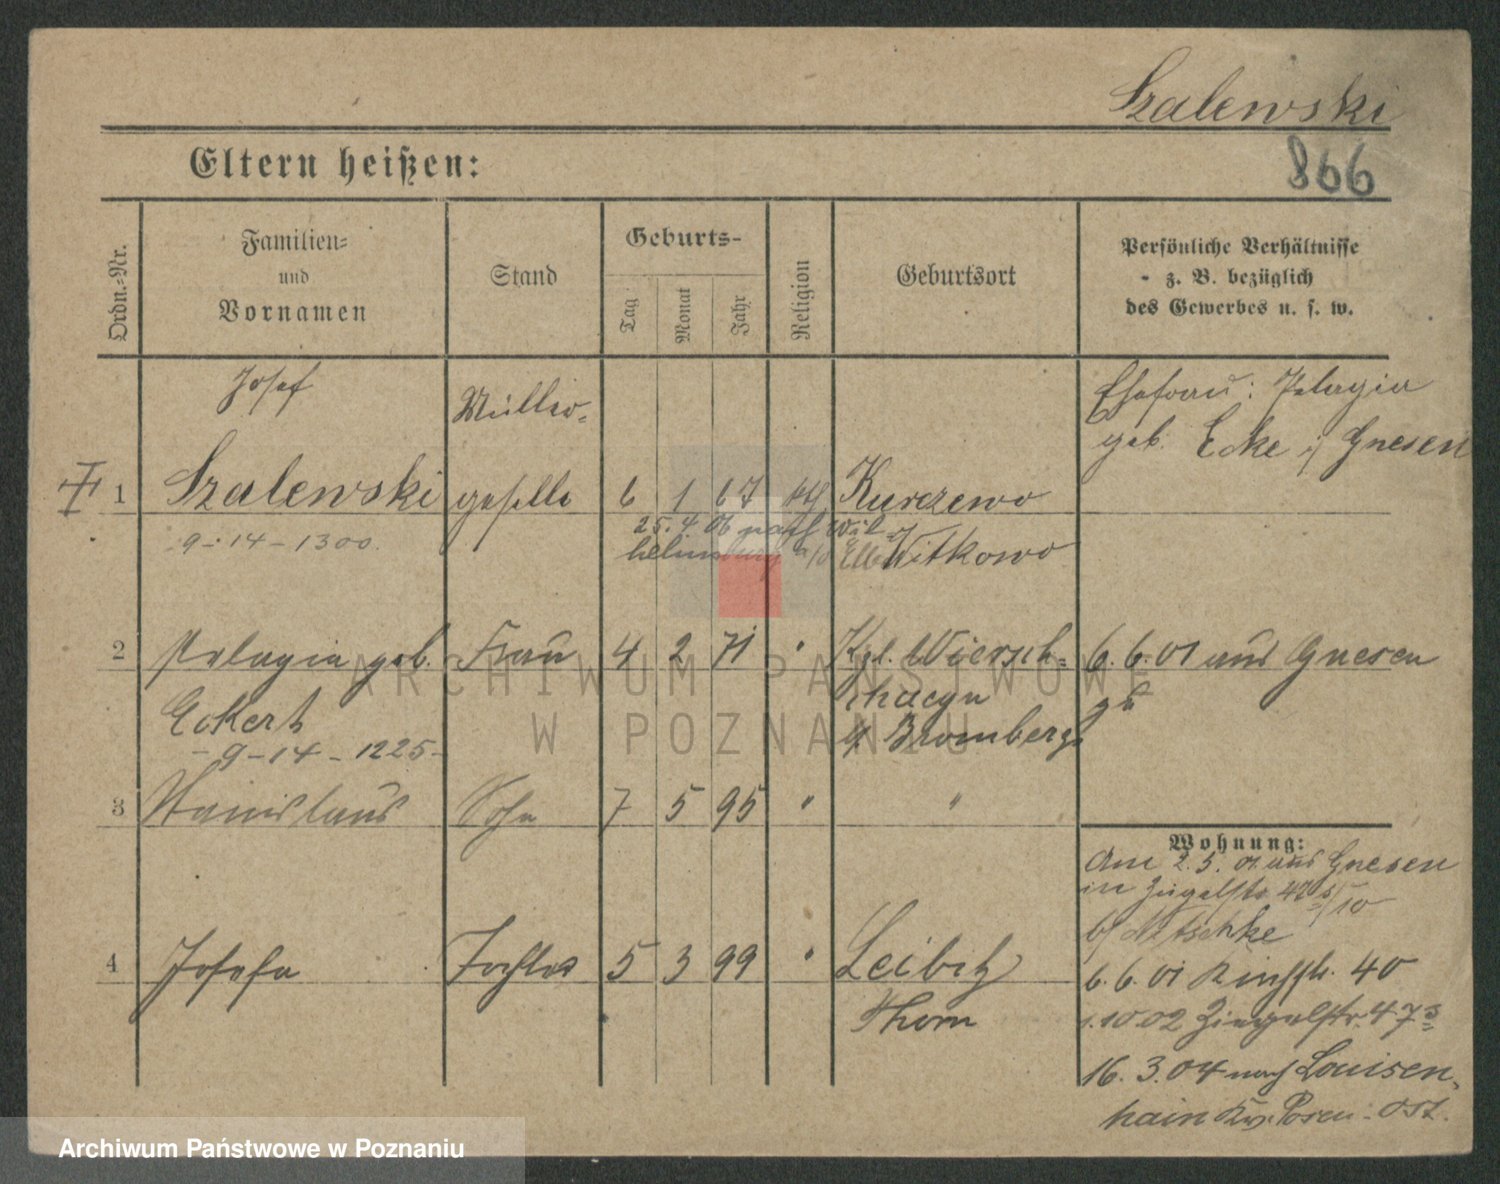 Szalewski
Eltern heißen:
866
Ordn.-Nr.
Familien-
und
Vornamen
Stand
Geburts-
Tag
Monat
Jahr
Religion
Geburtsort
Persönliche Verhältnisse
z. B. bezüglich
des Gewerbes u. s. w.
Josef
Müller-
Ehefrau: Pelagia
geb. Ecke i/ Gnesen
1 Szalewski geselle 6 1 67 kth Kurczewo
25.4.06 nach Wil-
9-14-1300. Witkowo
2 Pelagia geb. Frau 4 2 71 " Kgl. Wiersch- 6.6.01 aus Gnesen
Eckert zu
Bromberg
-9-14-1225-
3 Stanislaus Sohn 7 5 95 " "
Wohnung:
Am 2.5.01 aus Gnesen
in
b/ Nitschke
4 Josefa Tochter 5 3 99 " Leibitz 6.6.01 40
Thorn 1.10.02 Ziegelstr. 47
16.3.04 nach Louisen-
hain Kr. Posen-Ost.
ARCHIWUM PAŃSTWOWE
W POZNANIU
Archiwum Państwowe w Poznaniu